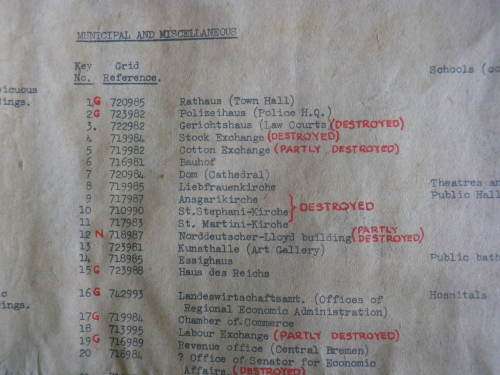 MUNICIPAL AND MISCELLANEOUS
Key Grid
No. Reference.
Schools
icuous
ings.
1 G 720985 Rathaus (Town Hall)
2 G 723982 Polizeihaus (Police H.Q.)
3. 722982 Gerichtshaus (Law Courts) (DESTROYED)
4 719984 Stock Exchange (DESTROYED)
5 719982 Cotton Exchange (PARTLY DESTROYED)
6 716981 Bauhof
7 720984 Dom (Cathedral)
8 719985 Liebfrauenkirche
Theatres an
9 717987 Ansgarikirche
Public Hall
10 710990 St.Stephani-Kirche } DESTROYED
11 717983 St. Martini-Kirche
12 N 718987 Norddeutscher-Lloyd building (PARTLY DESTROYED)
13 723981 Kunsthalle (Art Gallery)
14 718985 Essighaus
Public bath
15 G 723988 Haus des Reichs
ic
ings.
16 G 742993 Landeswirtschaftsamt. (Offices of
Hospitals
Regional Economic Administration)
17 G 719984 Chamber of Commerce
18 713995 Labour Exchange (PARTLY DESTROYED)
19 G 716989 Revenue office (Central Bremen)
20 716984 ? Office of Senator for Economic
Affairs (DESTROYED)